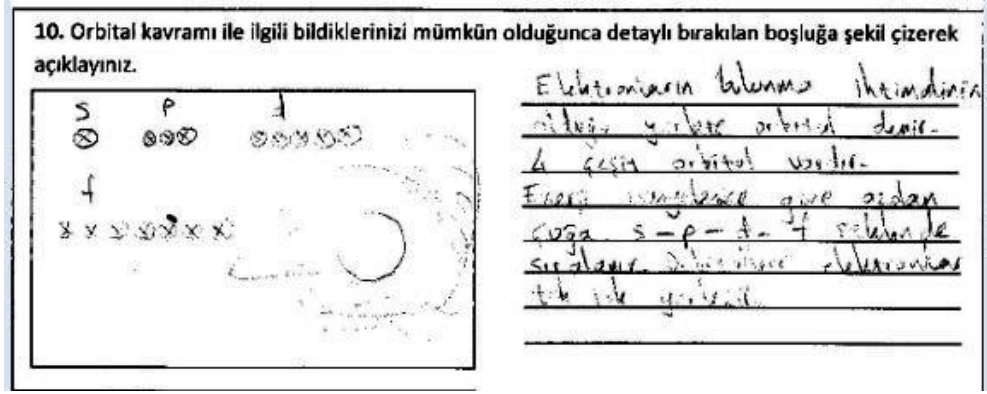 10. Orbital kavramı ile ilgili bildiklerinizi mümkün olduğunca detaylı bırakılan boşluğa şekil çizerek
açıklayınız.
s p d
f
Elektronların bulunma ihtimalinin
olduğu yerlere orbital denir.
4 çeşit orbital vardır.
Enerji göre azdan
çoğa s-p-d-f şeklinde
sıralanır. elektronlar
tek tek